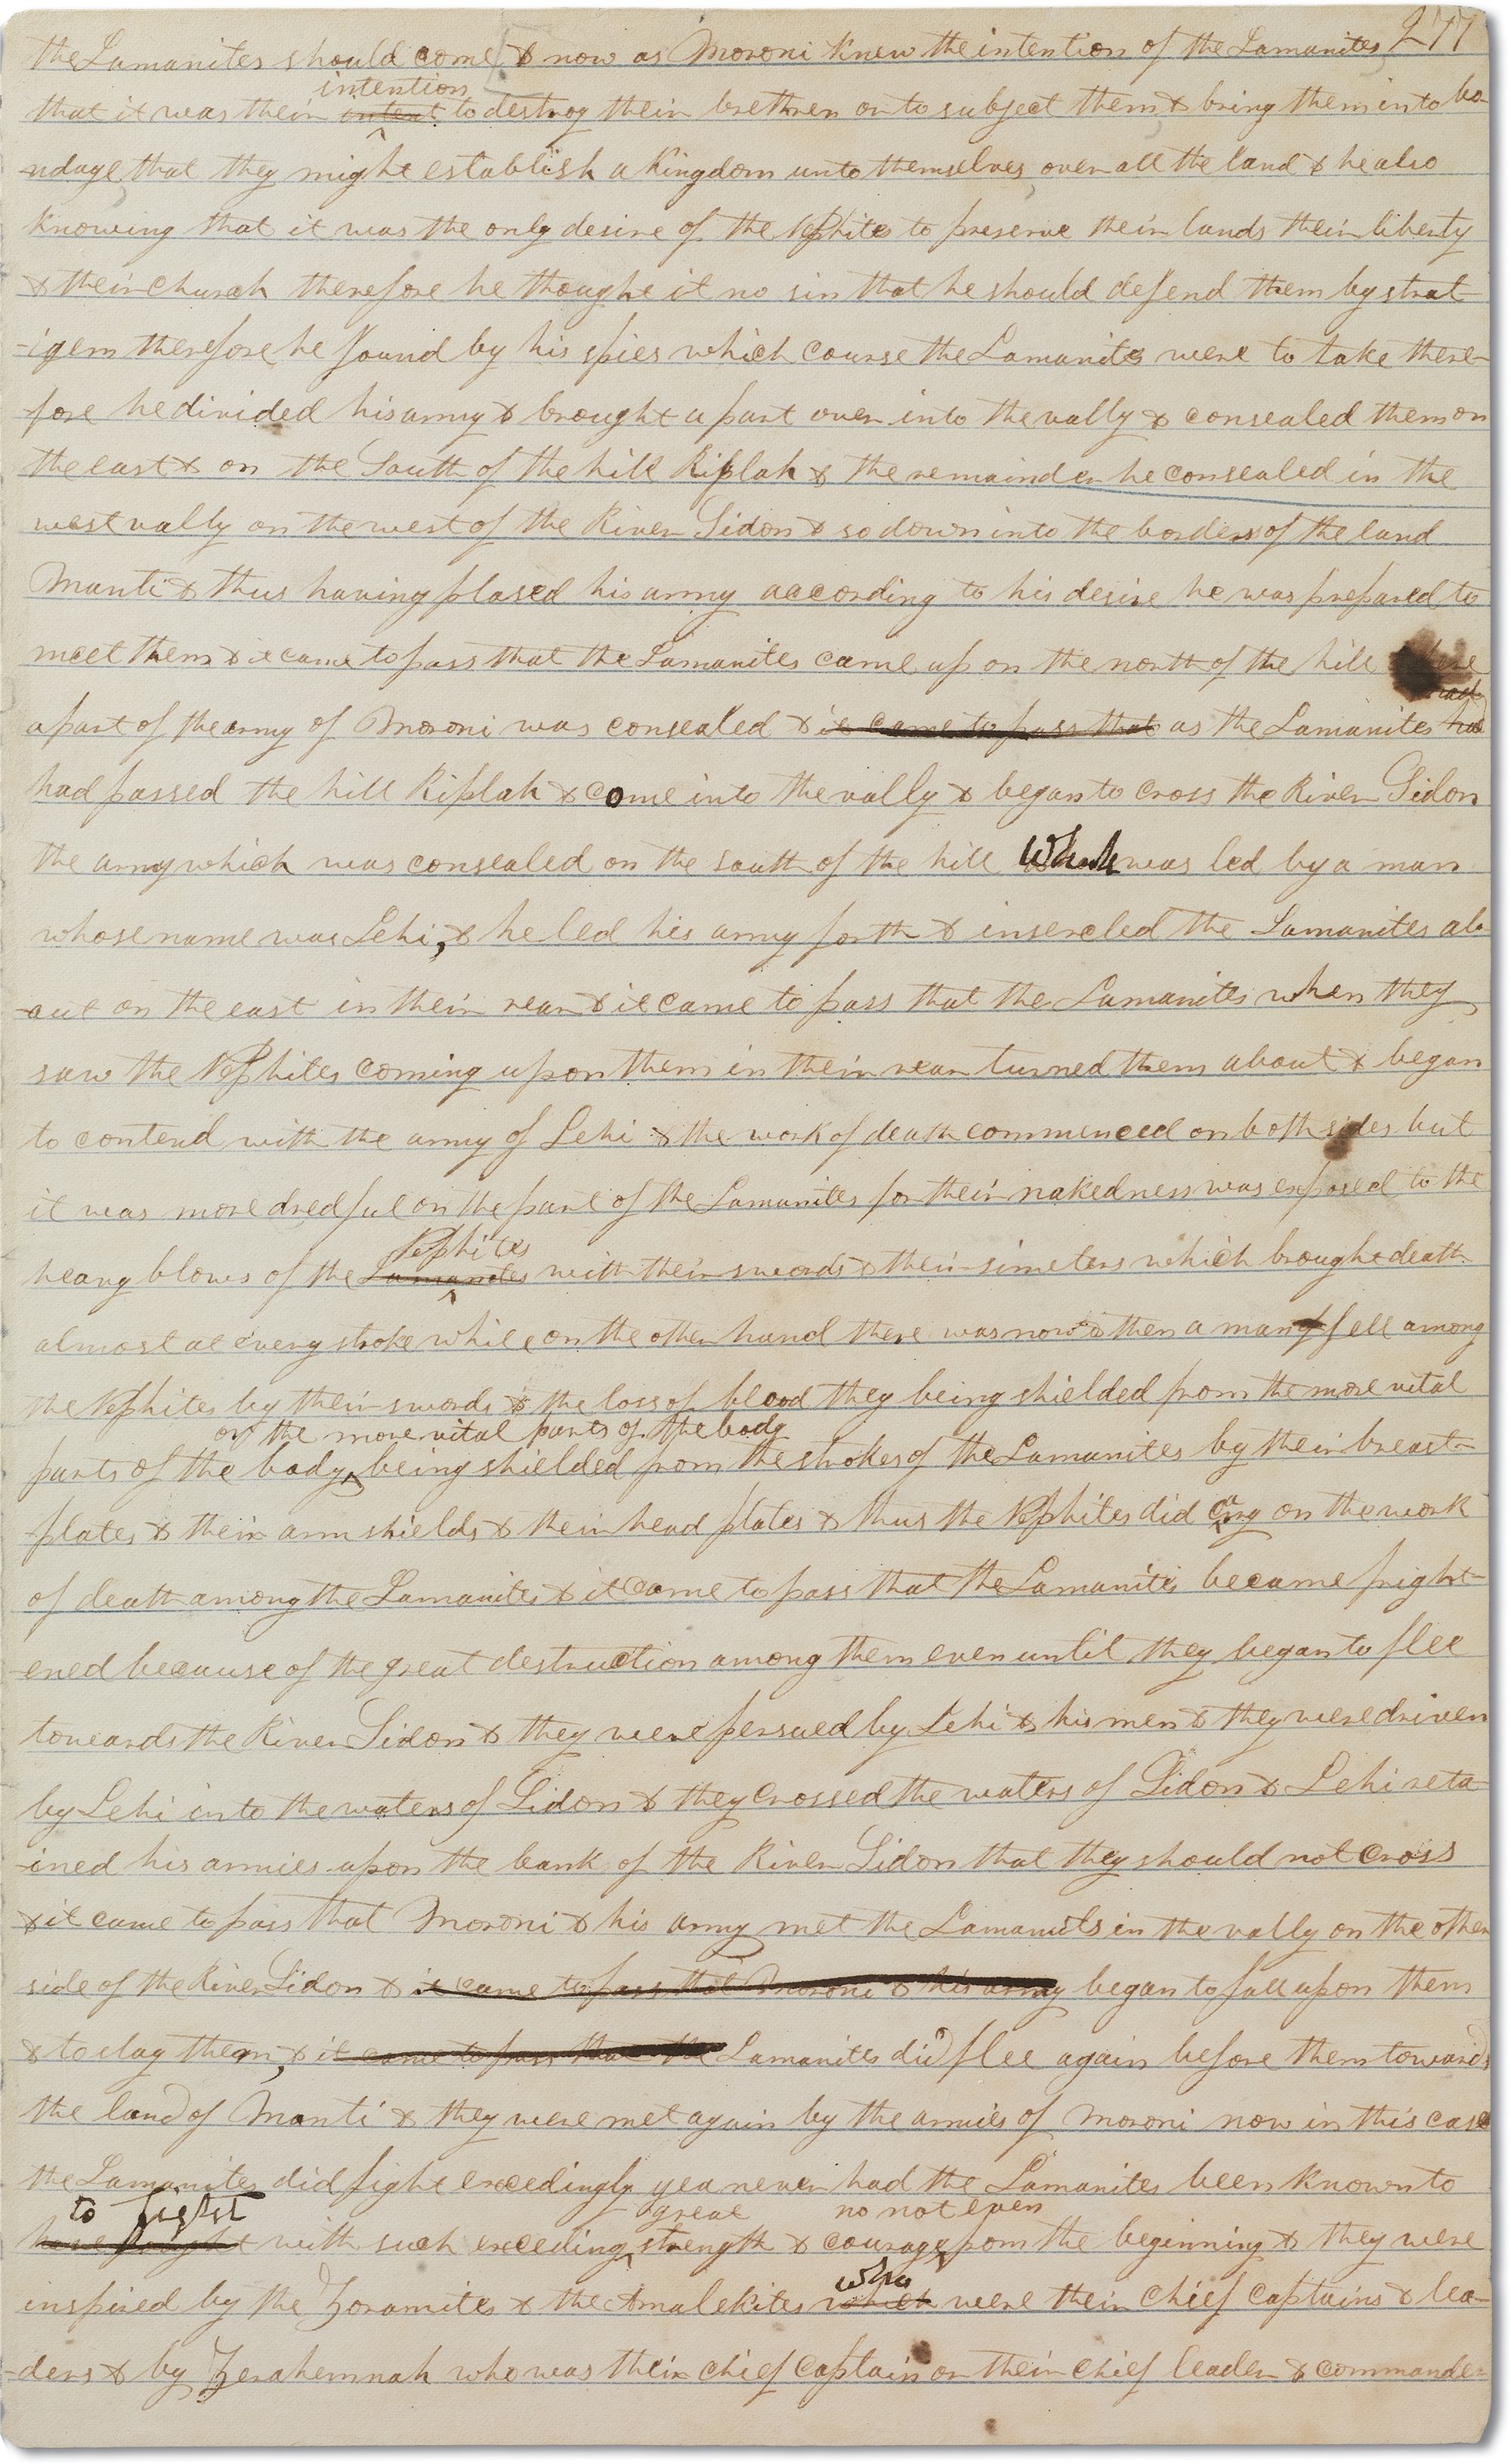 277
the Lamanites should come & now as Moroni knew the intention of the Lamanites
intention
that it was their intent to destroy their brethren or to subject them & bring them into bo-
ndage that they might establish a Kingdom unto themselves over all the land & he also
knowing that it was the only desire of the Nephites to preserve their lands their liberty
& their Church therefore he thought it no sin that he should defend them by strat
-igem therefore he found by his spies which course the Lamanites were to take there-
fore he divided his army & brought a part over into the vally & consealed them on
the east & on the South of the hill Riplah & the remainder he consealed in the
west vally on the west of the River Sidon & so down into the borders of the land
Manti & thus having plased his army according to his desire he was prepared to
meet them & it came to pass that the Lamanites came up on the north of the hill where
a part of the army of Moroni was consealed & it came to pass that as the Lamanites had
had passed the hill Riplah & come into the vally & began to cross the River Sidon
the army which was consealed on the south of the hill which was led by a man
whose name was Lehi, & he led his army forth & insercled the Lamanites ab-
-out on the east in their rear & it came to pass that the Lamanites when they
saw the Nephites coming upon them in their rear turned them about & began
to contend with the army of Lehi & the work of death commenced on both sides but
it was more dredful on the part of the Lamanites for their nakedness was exposed to the
Nephites
heavy blows of the Lamanites with their swords & their simeters which brought death
almost at every stroke while on the other hand there was now & then a man fell among
the Nephites by their swords & the loss of blood they being shielded from the more vital
or the more vital parts of the body
parts of the body being shielded from the strokes of the Lamanites by their breast-
plates & their arm shields & their head plates & thus the Nephites did cary on the work
of death among the Lamanites & it came to pass that the Lamanites became fright-
-ened because of the great destruction among them even until they began to flee
towards the River Sidon & they were persued by Lehi & his men & they were driven
by Lehi into the waters of Sidon & they crossed the waters of Sidon & Lehi reta-
-ined his armies upon the bank of the River Sidon that they should not cross
& it came to pass that Moroni & his army met the Lamanites in the vally on the other
side of the River Sidon & it came to pass that Moroni & his army began to fall upon them
& to slay them, & it came to pass that the Lamanites did flee again before them towards
the land of Manti & they were met again by the armies of Moroni now in this case
the Lamanites did fight excedingly yea never had the Lamanites been known to
to fight great no not even
have fought with such exceding strength & courage from the beginning & they were
who
inspired by the Zoramites & the Amalekites which were their chief captains & lea-
-ders & by Zerahemnah who was their chief captain or their chief leader & commander